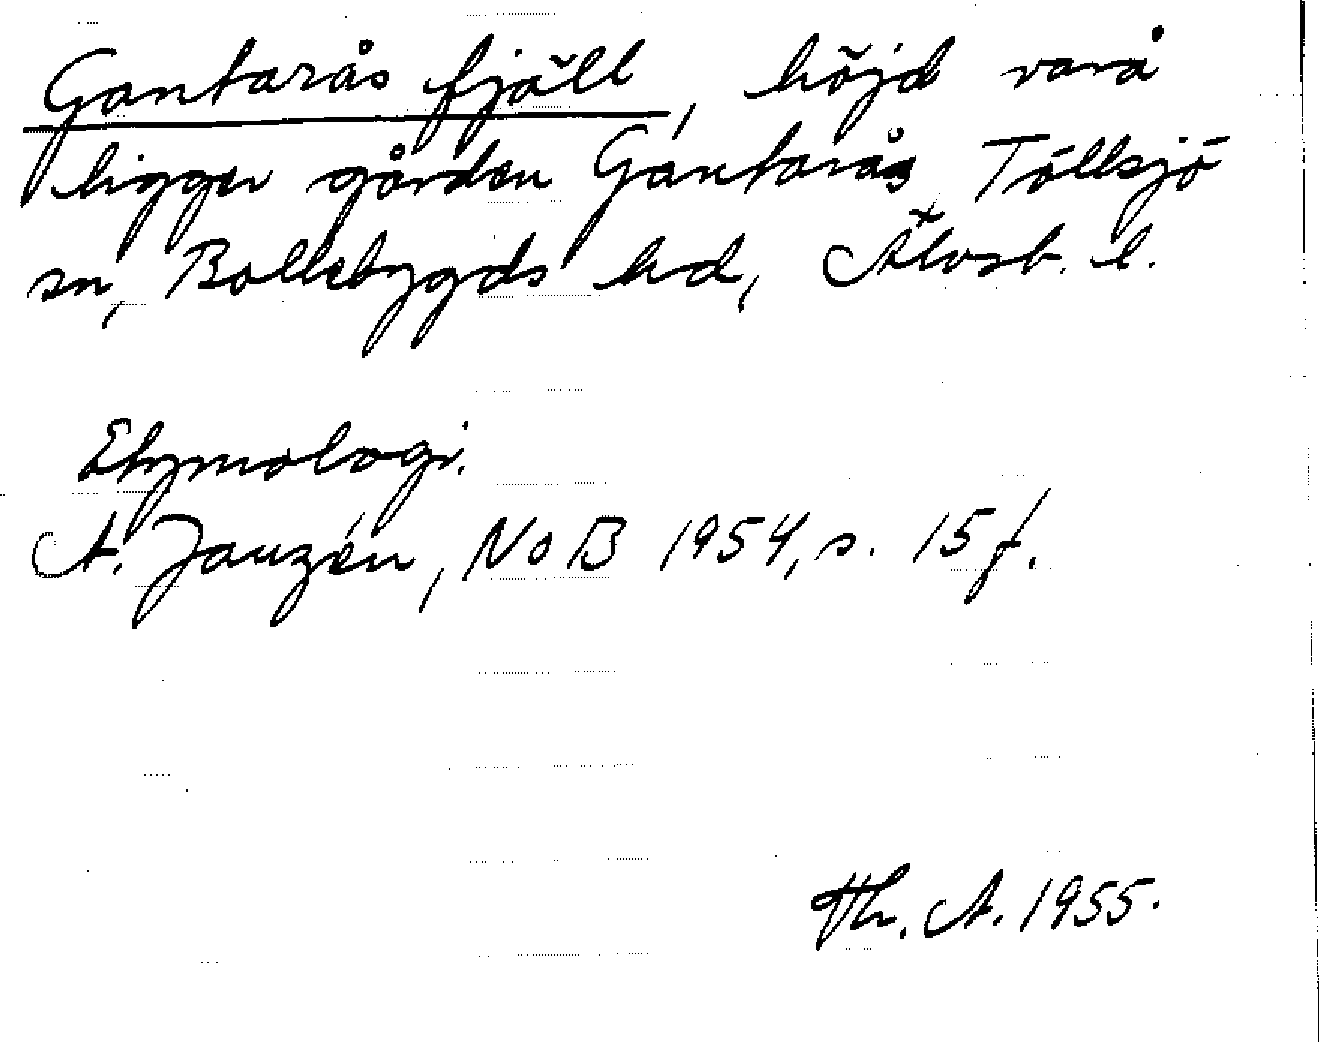 Gantarås fjäll, höjd varå
ligger gården Gantarås, Töllsjö
sn, Bollebygds hd, Älvsb. l.
Etymologi.
A. Janzén, NoB 1954, s. 15 f.
Th. A. 1955.